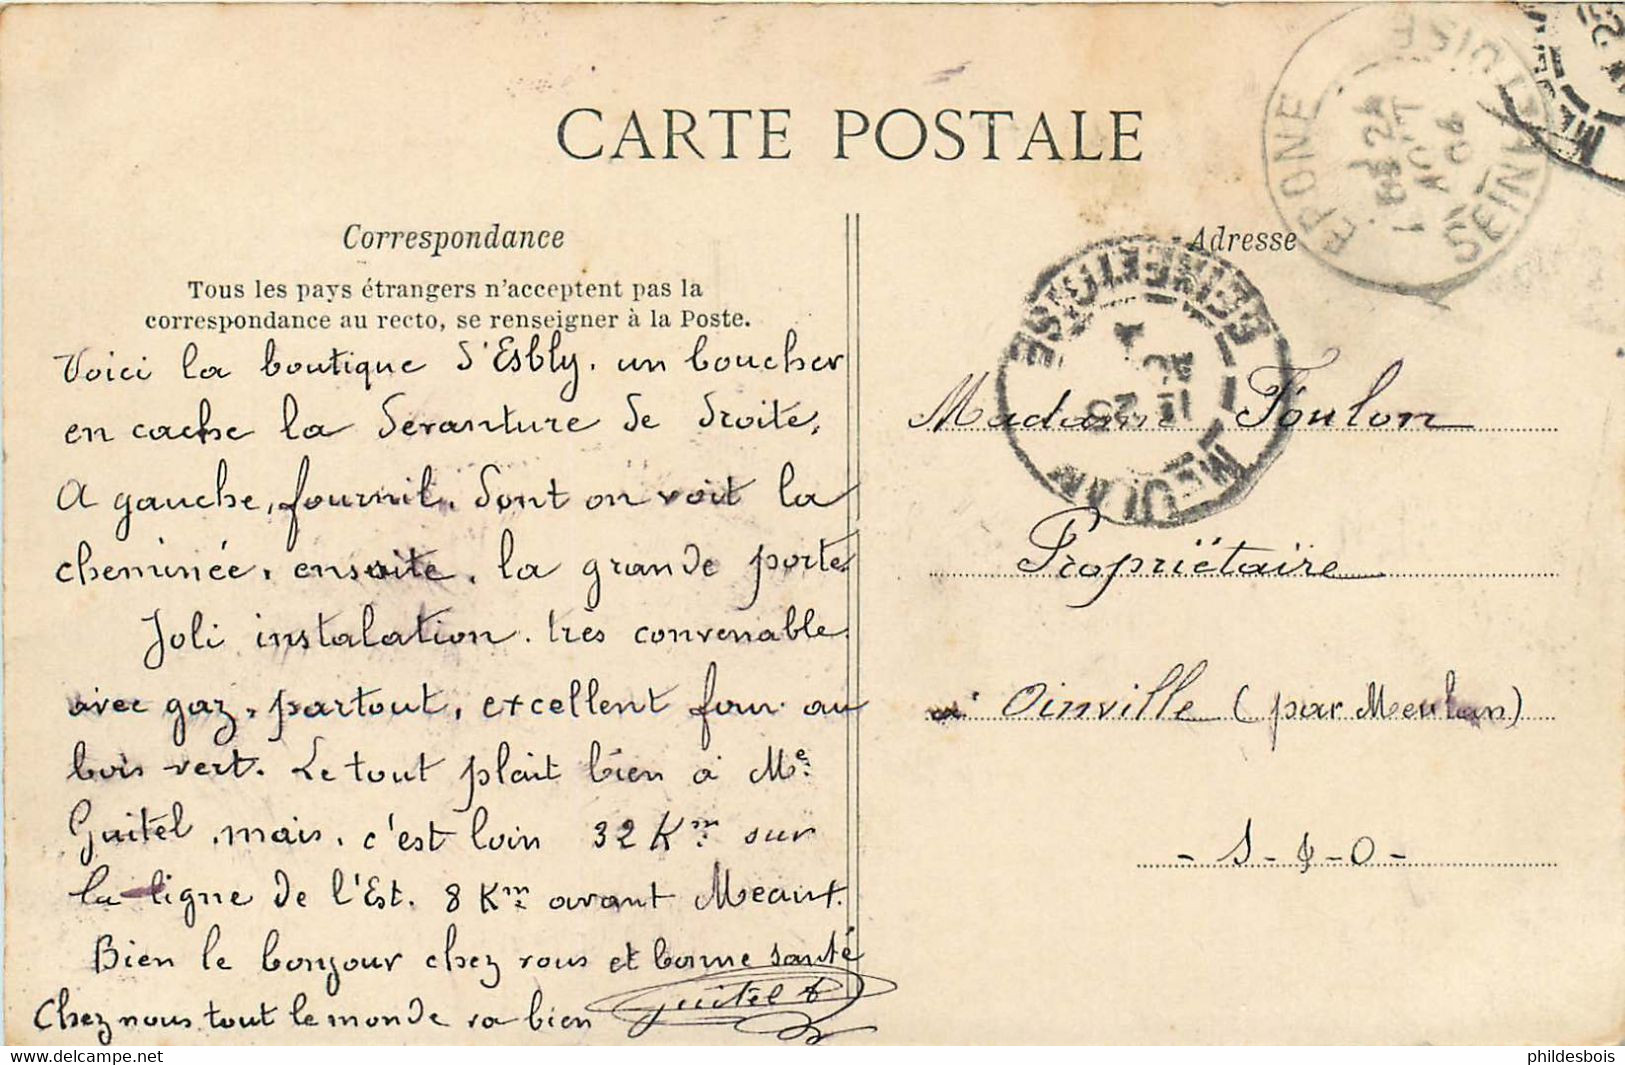 CARTE POSTALE
Correspondance
Tous les pays étrangers n'acceptent pas la
correspondance au recto, se renseigner à la Poste.
Voici la boutique d'Esbly. un boucher
en cache la devanture de droite.
A gauche, fournil. dont on voit la
cheminée. ensuite. la grande porte
Joli instalation. très convenable.
avec gaz. partout. excellent four au
bois vert. Le tout plait bien à Me
Guitel. mais. c'est loin 32 Km sur
la ligne de l'Est. 8 Km avant Meaux.
Bien le bonjour chez vous et bonne santé
Chez nous tout le monde va bien Guitel
Adresse
Madame Foulon
Propriëtaire
à Oinville (par Meulan)
- S - & - O -
EPONE
SEINE ET OISE
24 AOUT
MEULAN
SEINE ET OISE
phildesbois
delcampe.net